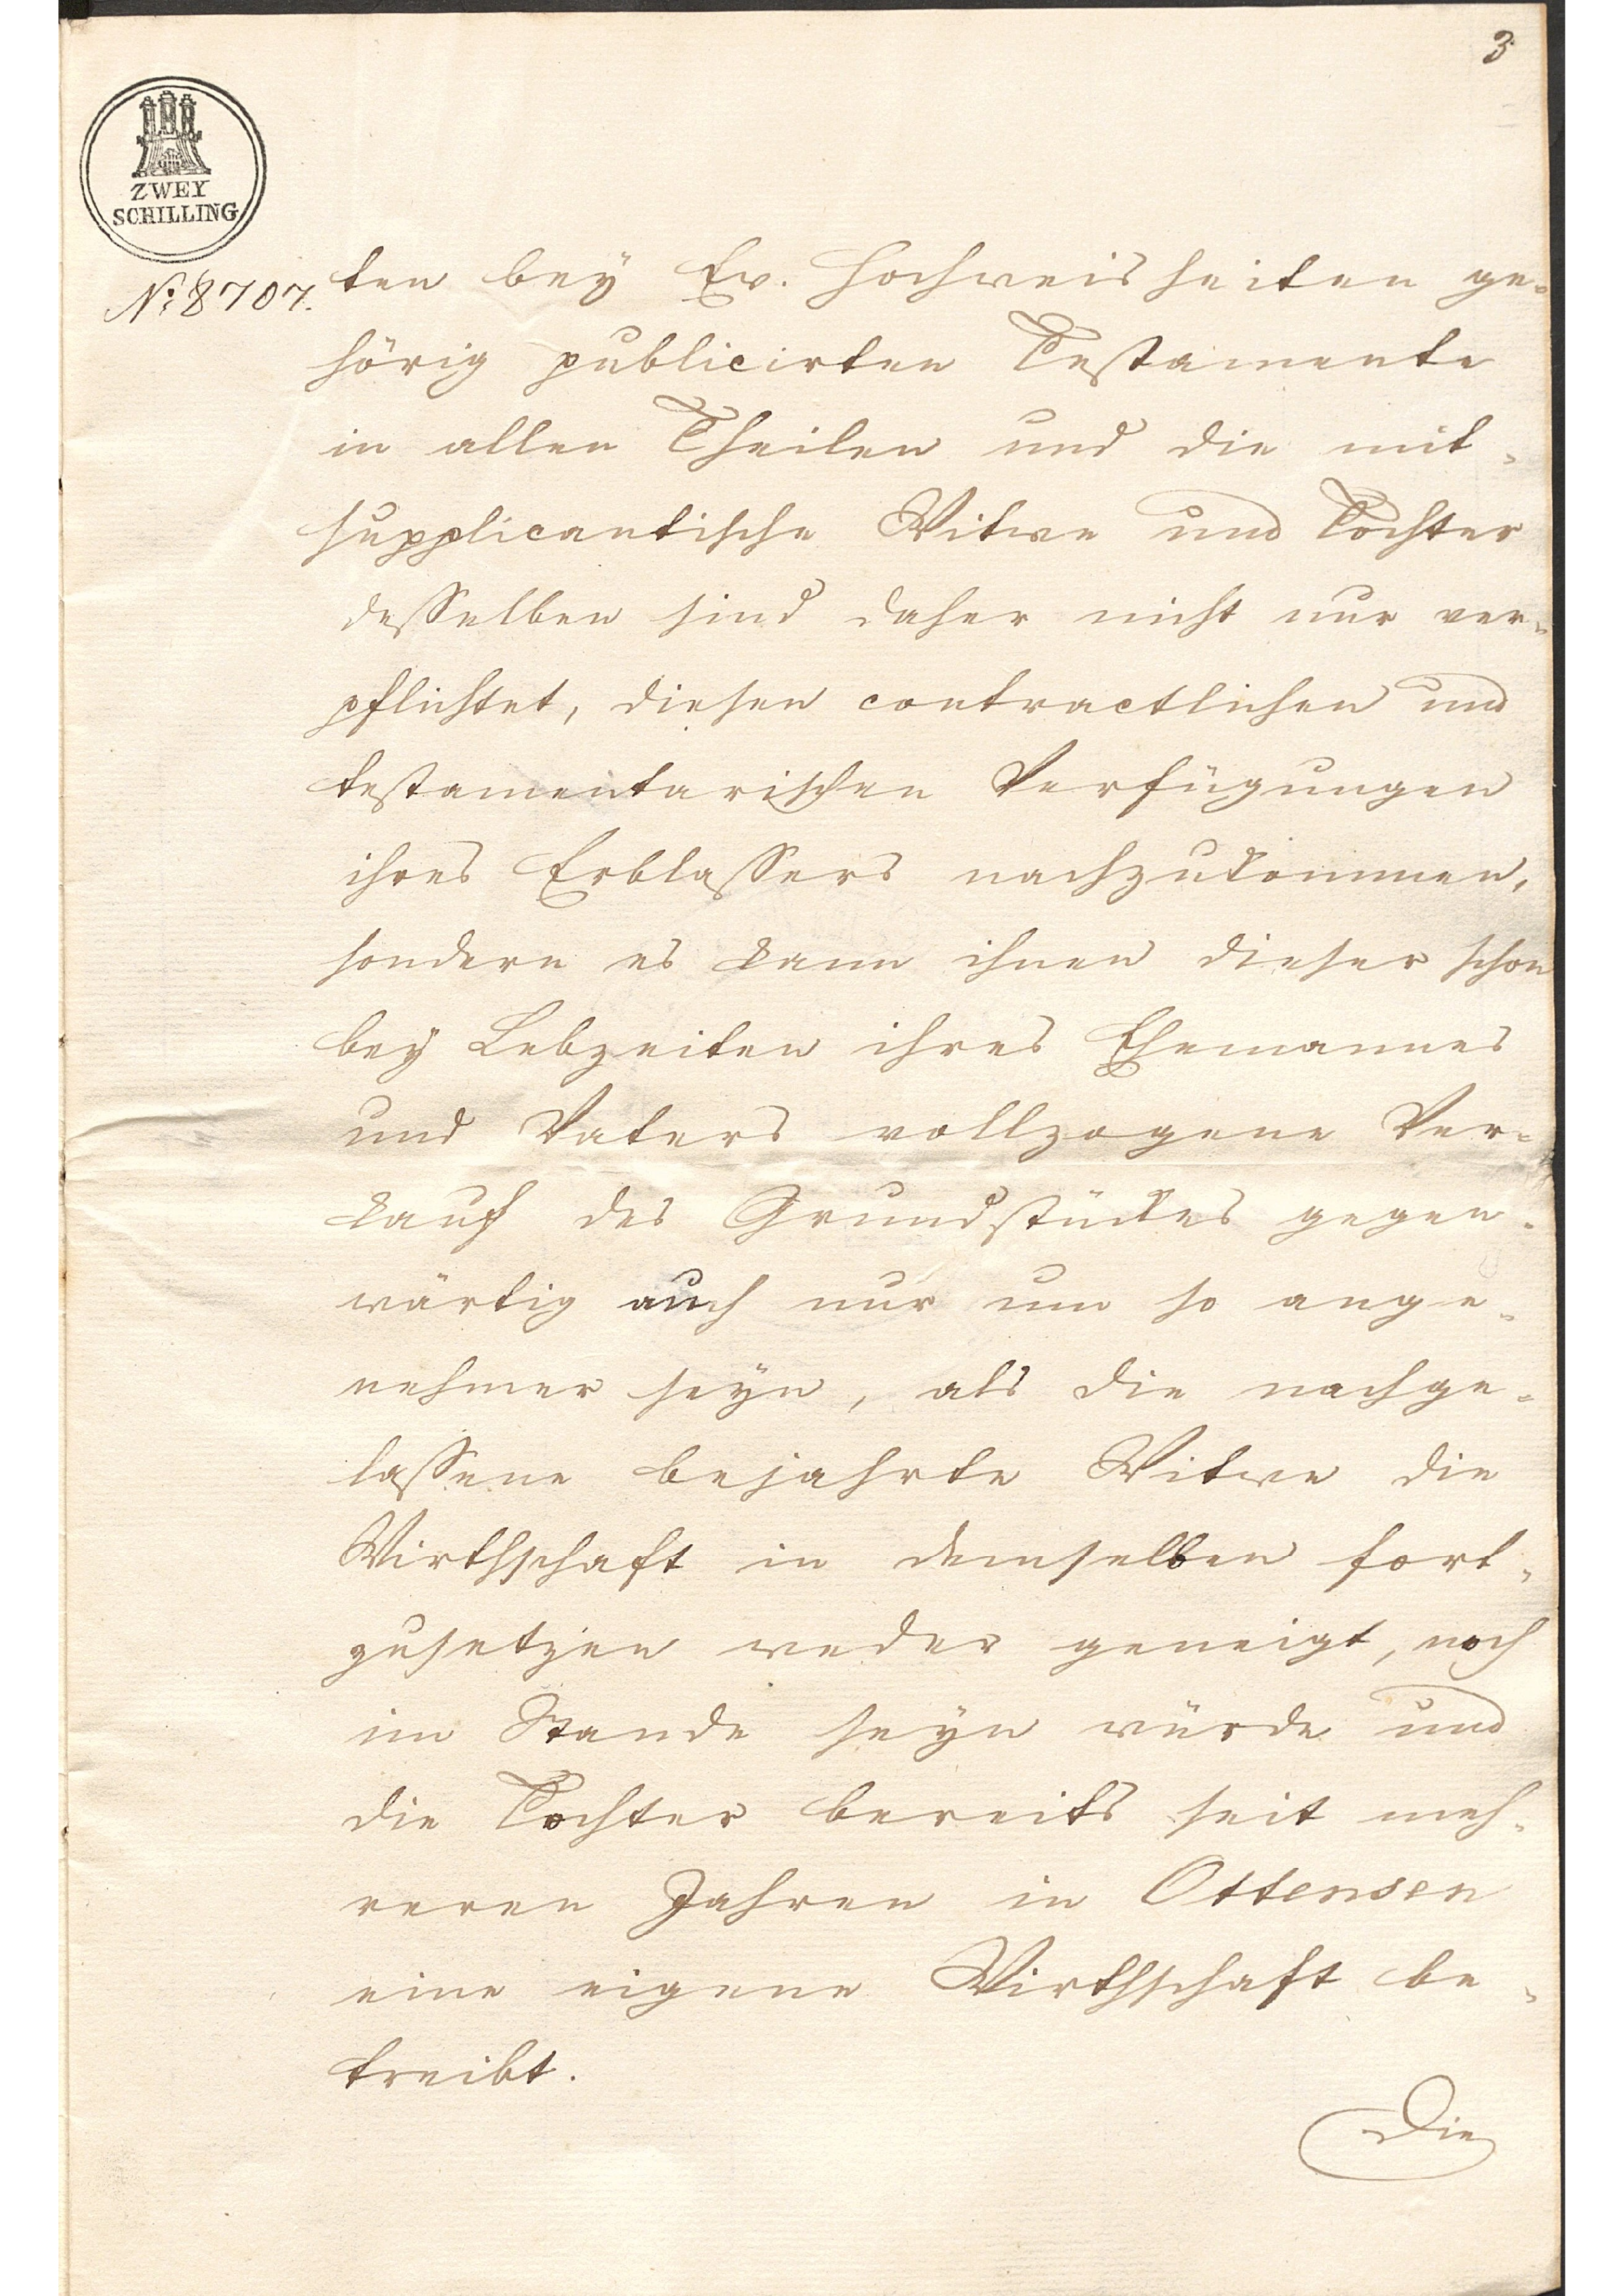 3
ZWEY
SCHILLING
No 8707.
ten bey Ew. Hochweisheiten ge-
hörig publicirten Testamente
in allen Theilen und die mit-
supplicantische Witwe und Tochter
desselben sind daher nicht nur ver-
pflichtet, diesen contractlichen und
testamentarischen Verfügungen
ihres Erblassers nachzukommen,
sondern es kann ihnen dieser schon
bey Lebzeiten ihres Ehemannes
und Vaters vollzogene Ver-
kauf des Grundstückes gegen-
wärtig auch nur um so ange-
nehmer seyn, als die nachge-
lassene bejahrte Witwe die
Wirthschaft in demselben fort-
zusetzen weder geneigt, noch
im Stande seyn würde und
die Tochter bereits seit meh-
reren Jahren in Ottensen
eine eigene Wirthschaft be-
treibt.
Die